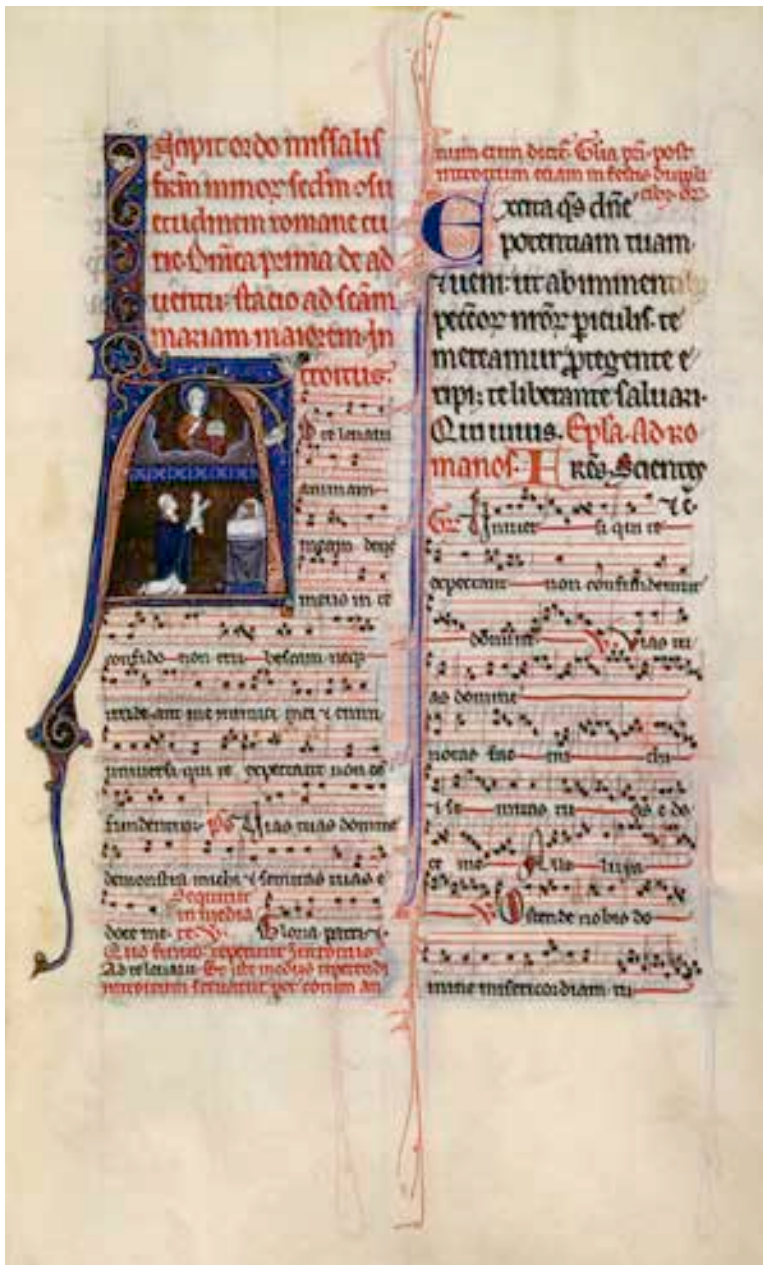 Incipit ordo missalis
frm minoꝝ scdm ↄsu
etudinem romane cu
rie. Dnica prima de ad
uentu. statio ad scam
mariam maiorem. In
troitus.
Ad te leuaui
animam
meam deus
meus in te
confido non eru bescam neqꝫ
irrideant me inimici mei ⁊ enim
uniuersi qui te expectant non cō
fundentur. p̄s Uias tuas domine
demonstra michi ⁊ semitas tuas e
Sequitur
in media
doce me. Gloria patri.
Quo finito repetitur Introitus.
Ad te leuaui. Et iste modus repetendi
introitum seruatur per totum an
num cum dicit Glia pri. post
introitum etiam in festis dupli
cibꝫ.
Excita qs dne
potentiam tuam
⁊ ueni: ut ab imminentibꝫ
peccoꝝ nroꝝ piculis. te
mereamur ptegente e
ripi: te liberante saluari.
Qui uiuis. Epsa. Ad ro
manos. Frēs. Scientes
Gr Uniuer si qui te
expectant non confundentur
domine V. Uias tu
as domine
notas fac mi chi
⁊ se mitas tu as e do
ce me Alle luya
V. Ostende nobis do
mine misericordiam tu